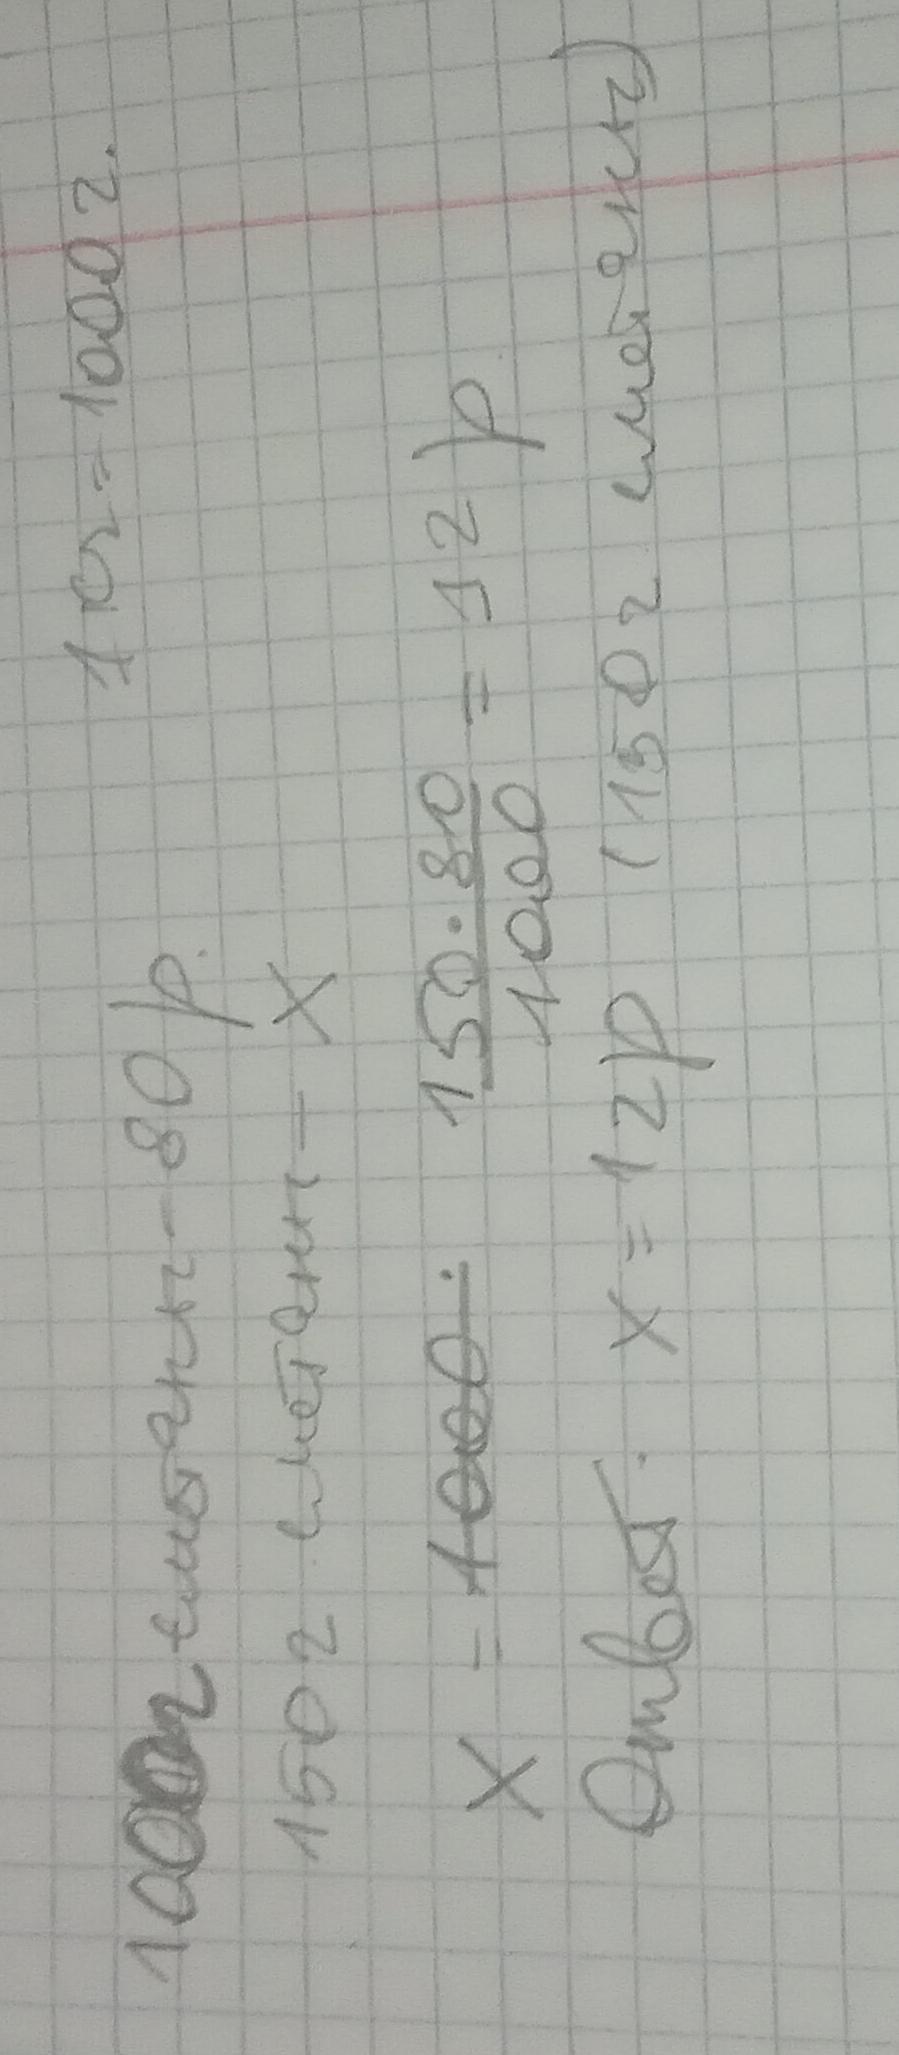 1 кг = 1000 г.
1000 г сметаны - 80 р.
150 г сметаны - X
X = 150 · 80 / 1000 = 12 р
Ответ: X = 12 р (150 г сметаны)